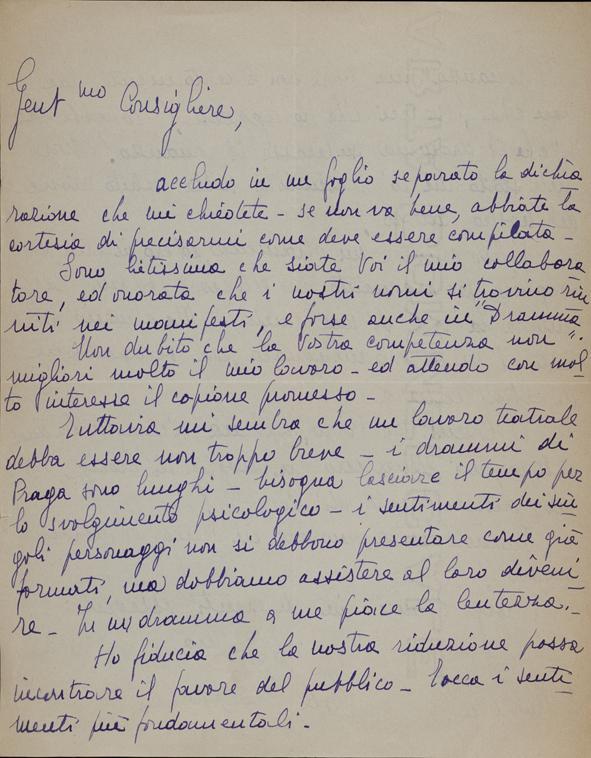 Gent mo Consigliere,
accludo in un foglio separato la dichia
razione che mi chiedete - se non va bene, abbiate la
cortesia di precisarmi come deve essere compilata -
Sono lietissima che siate Voi il mio collabora
tore, ed onorata che i nostri nomi si trovino riu
niti nei manifesti, e forse anche in "Dramma".
Non dubito che la Vostra competenza non
migliori molto il mio lavoro - ed attendo con mol
to interesse il copione promesso -
Tuttavia mi sembra che un lavoro teatrale
debba essere non troppo breve - i drammi di
Praga sono lunghi - bisogna lasciare il tempo per
lo svolgimento psicologico - i sentimenti dei sin
goli personaggi non si debbono presentare come già
formati, ma dobbiamo assistere al loro diveni
re - In un dramma a me piace la lentezza. -
Ho fiducia che la nostra riduzione possa
incontrare il favore del pubblico - Tocca i senti
menti più fondamentali -